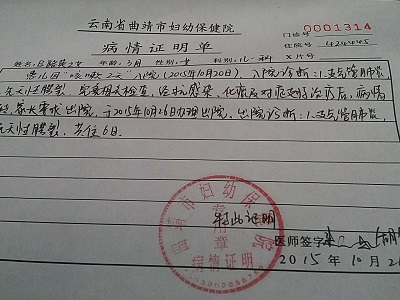 云南省曲靖市妇幼保健院
门诊号 0001314
病情证明单
住院号 424445
姓名 之女 年龄:3月 性别:女 科别:儿一科 X片号
患儿因"咳嗽2天"入院(2015年10月20日)，入院诊断:1.支气管肺炎
先天性腭裂。完善相关检查，经抗感染、化痰及对症支持治疗后，病情
家长要求出院，于2015年10月26日办理出院，出院诊断:1.支气管肺炎，
先天性腭裂。共住6日。
特此证明
曲靖市妇幼保健院
专用章
病情证明
医师签字
2015年10月26